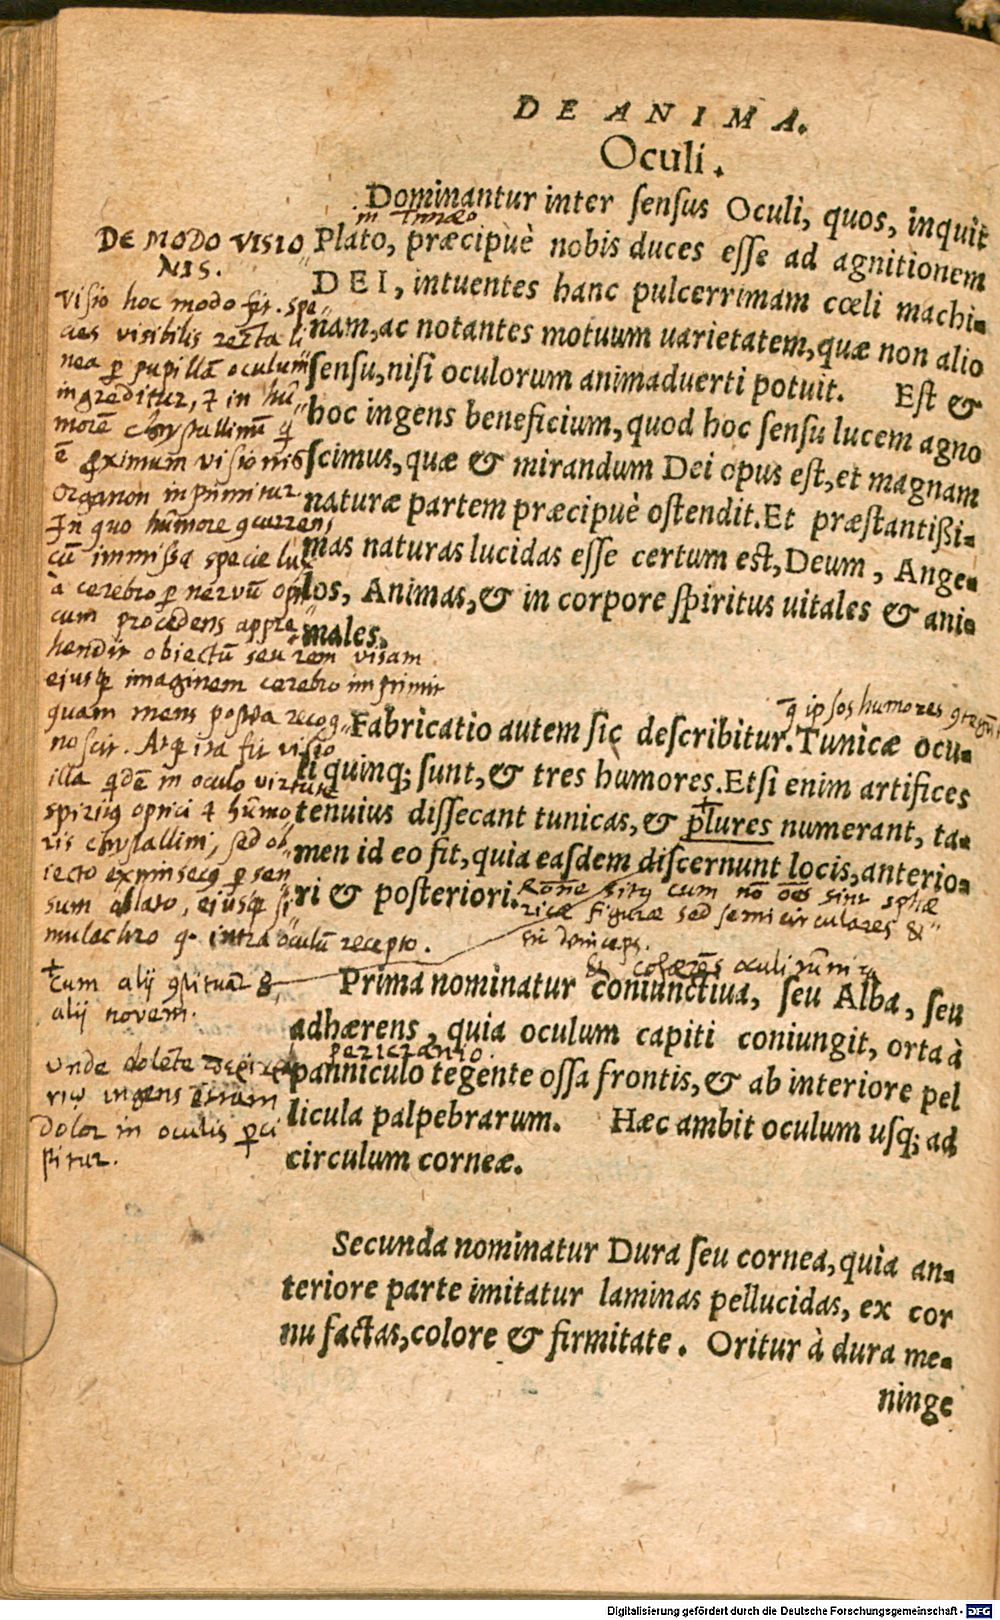 DE ANIMA.
Oculi.
Dominantur inter ſenſus Oculi, quos, inquit
in Timæo
Plato, præcipuè nobis duces eſſe ad agnitionem
DEI, intuentes hanc pulcerrimam cœli machi-
nam, ac notantes motuum uarietatem, quæ non alio
ſenſu, niſi oculorum animaduerti potuit. Eſt &
hoc ingens beneficium, quod hoc ſenſu lucem agno
ſcimus, quæ & mirandum Dei opus eſt, et magnam
naturæ partem præcipuè oſtendit. Et præſtantißi-
mas naturas lucidas eſſe certum est, Deum, Ange-
los, Animas, & in corpore ſpiritus uitales & ani-
males.
DE MODO VISIO
NIS.
Viſio hoc modo fit. spe
cies visibilis recta li
nea p pupillā oculum
ingreditur, & in hū
morē chrystallinū q
ē proximum visionis
organon inprimitur.
In quo humore
cū immissa specie lux
à cerebro p nervū opti
cum procedens appre
hendit obiectū seu rem visam
ejusq imaginem cerebro imprimit
quam mens postea recog
noscit. Atq ita fit visio
illa qdē in oculo virtute
spiritus optici & humo
ris chrystallini, sed ob
iecto extrinsecus p sen
sum oblato, ejusq si
mulachro intra oculū recepto.
q ipsos humores
Fabricatio autem ſic deſcribitur. Tunicæ ocu-
li quinq; ſunt, & tres humores. Etſi enim artifices
tenuius diſſecant tunicas, & plures numerant, ta-
men id eo fit, quia eaſdem diſcernunt locis, anterio-
ri & poſteriori.
Rōne situs cum nō oēs sint sphæ
ricæ figuræ sed semicirculares &
+cum alij
alij novem.
& cohærēs oculi
Prima nominatur coniunctiua, ſeu Alba, ſeu
adhærens, quia oculum capiti coniungit, orta à
pericranio.
panniculo tegente oſſa frontis, & ab interiore pel
licula palpebrarum. Hæc ambit oculum uſq; ad
circulum corneæ.
Unde dolēte
ingens etiam
dolor in oculis perci
pitur.
Secunda nominatur Dura ſeu cornea, quia an-
teriore parte imitatur laminas pellucidas, ex cor
nu factas, colore & firmitate. Oritur à dura me-
ninge
Digitalisierung gefördert durch die Deutsche Forschungsgemeinschaft - DFG